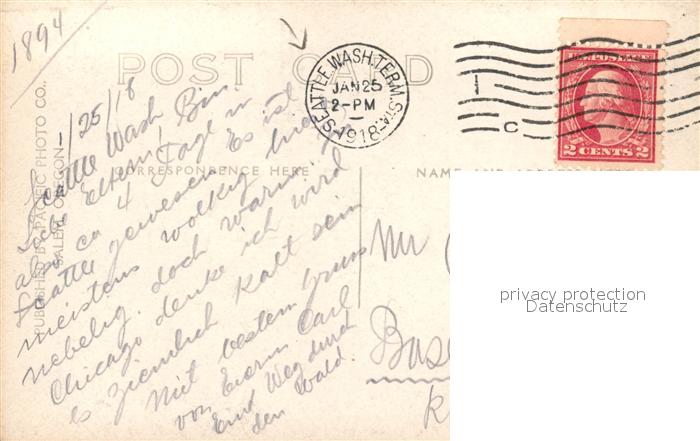 1894
POST CARD
SEATTLE, WASH. TERM. STA.
JAN 25
2-PM
1918
C
2 CENTS 2
PUBLISHED BY PACIFIC PHOTO CO.,
SALEM, OREGON
CORRESPONDENCE HERE
Seattle Wash 1/25/18
Eltern! Bin
also ca 4 Tage in
Seattle gewesen. Es ist
meistens wolkig
nebelig. doch warm. In
Chicago denke ich wird
es ziemlich kalt sein
Mit bestem Gruss
von Eurem Carl
Ein Weg durch
den Wald
Mr
privacy protection
Datenschutz